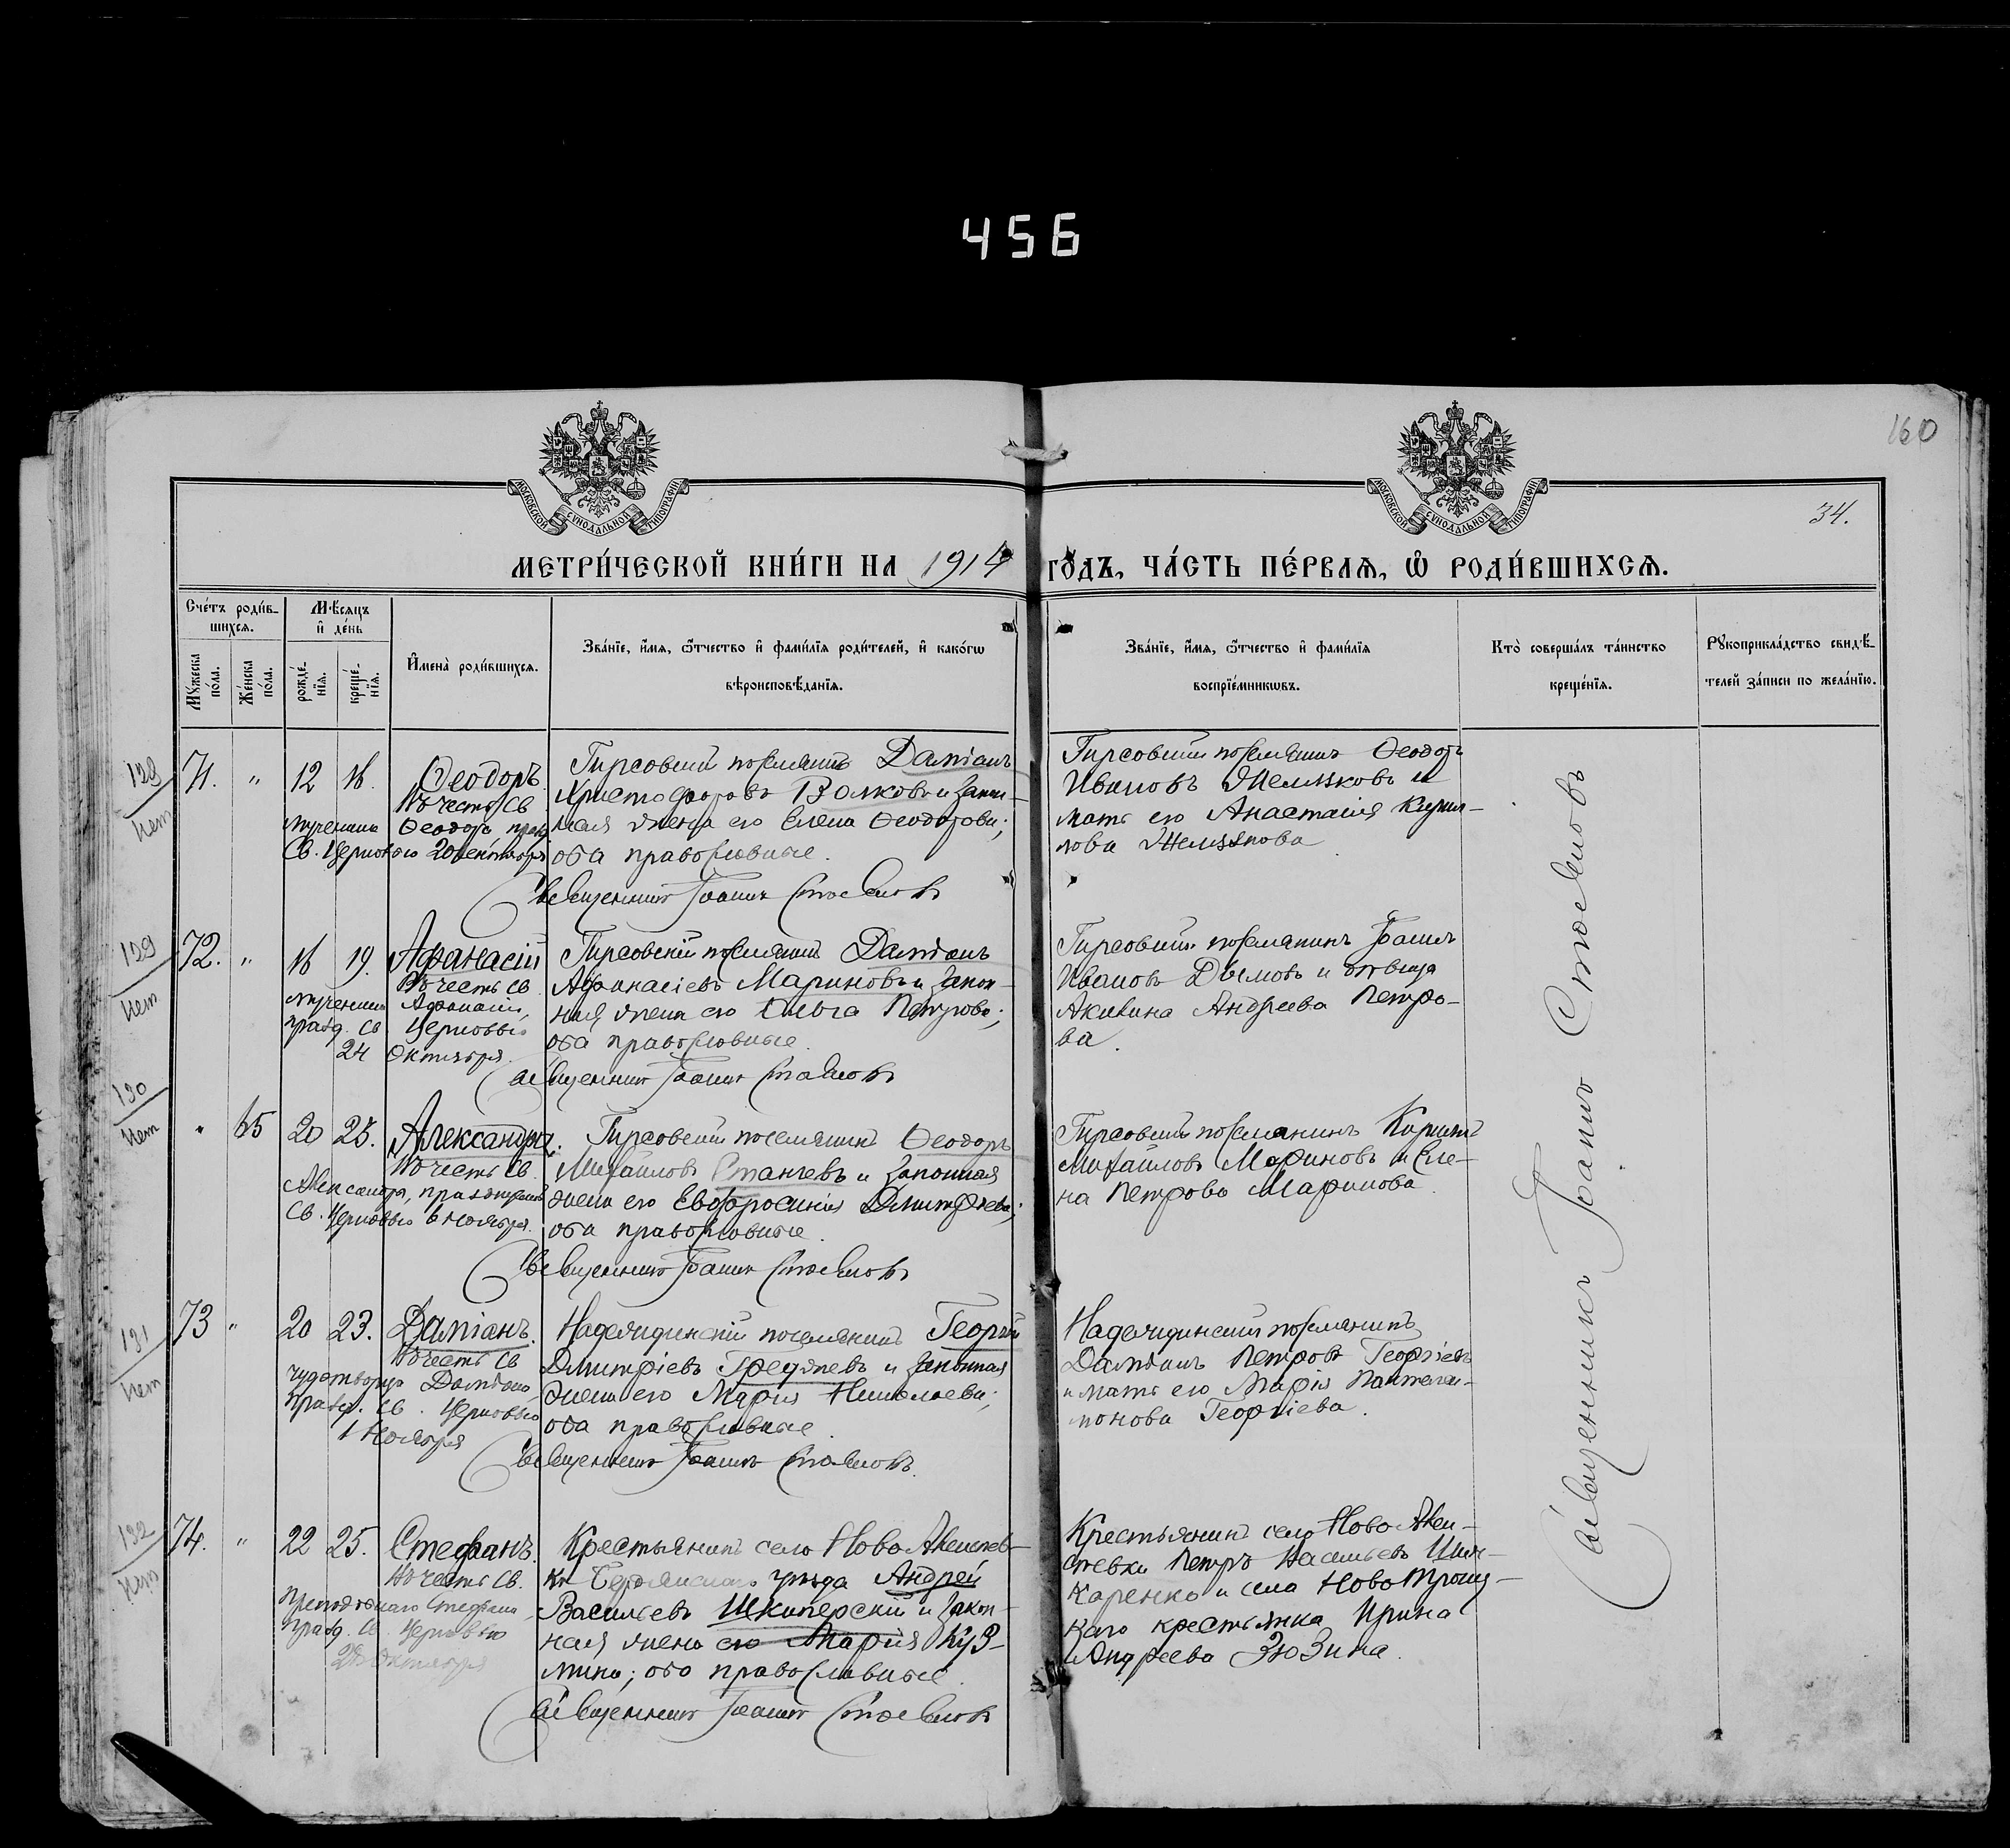 456
160
34.
МОСКОВСКОЙ СУНОДАЛЬНОЙ ТИПОГРАФІИ
МОСКОВСКОЙ СУНОДАЛЬНОЙ ТИПОГРАФІИ
МЕТРИ́ЧЕСКОЙ КНИ́ГИ НА 1914 ГО́ДЪ, ЧА́СТЬ ПЕ́РВАѦ, Ѡ҆ РОДИ́ВШИХСѦ.
Сче́тъ роди́в-
шихсѧ.
Мѣ́сѧцъ
и҆ де́нь
Мꙋ́жеска
по́ла.
Же́нска
по́ла.
рожде́-
нїѧ.
креще́-
нїѧ.
И҆мена̀ роди́вшихсѧ.
Зва́нїе, и҆́мѧ, ѻ҆́тчество и҆ фами́лїѧ роди́телей, и҆ како́гѡ
вѣроисповѣ́данїѧ.
Зва́нїе, и҆́мѧ, ѻ҆́тчество и҆ фами́лїѧ
воспрїе́мникѡвъ.
Кто̀ соверша́лъ та́инство
креще́нїѧ.
Рꙋкоприкла́дство свидѣ́-
телей за́писи по жела́нїю.
128
71. " 12 16. Ѳеодоръ.
Въ честь Св
мученика Ѳеодора, празд
Св. Церковью
Гирсовскій поселянинъ Даміанъ
Христофоровъ Волковъ и закон-
ная жена его Елена Ѳеодорова;
оба православные.
Священникъ Іоаннъ Стояновъ
Гирсовскій поселянинъ Ѳеодоръ
Ивановъ Желязковъ и
мать его Анастасія Кирил-
лова Желязкова
129
72. " 16 19. Аѳанасій
Въ честь Св
мученика Аѳанасія,
празд. Св Церковью
24 Октября.
Гирсовскій поселянинъ Даміанъ
Аѳанасіевъ Мариновъ и закон-
ная жена его Ольга Петрова;
оба православные.
Священникъ Іоаннъ Стояновъ
Гирсовскій поселянинъ Іоаннъ
Ивановъ Дымовъ и дѣвица
Акилина Андреева Петро-
ва.
130
" 65 20 25. Александра.
Въ честь Св.
Александры, празднуемой
Св. Церковью 6 Ноября.
Гирсовскій поселянинъ Ѳеодоръ
Михайловъ Станчевъ и законная
жена его Евфросинія Димитріева;
оба православные.
Священникъ Іоаннъ Стояновъ
Гирсовскій поселянинъ Кириллъ
Михайловъ Мариновъ и Еле-
на Петрова Маринова.
131
73 " 20 23. Даміанъ.
Въ честь Св
чудотворца Даміана
празд. Св. Церковью
1 Ноября
Надеждинскій поселянинъ Георгій
Димитріевъ и законная
жена его Марія Николаева;
оба православные.
Священникъ Іоаннъ Стояновъ.
Надеждинскій поселянинъ
Даміанъ Петровъ Георгіевъ
и мать его Марія Пантелеи-
монова Георгіева.
132
74. " 22 25. Стефанъ.
Въ честь Св.
Преподобнаго Стефана
празд. Св. Церковью
28 Октября
Крестьянинъ села Ново
Бердянскаго уѣзда Андрей
Васильевъ Шкиперскій и закон-
ная жена его Марія Кузь-
мина; оба православные.
Священникъ Іоаннъ Стояновъ
Крестьянинъ села Ново
Петръ Васильевъ
и села Ново
крестьянка Ирина
Андреева Зюзина.
Священникъ Іоаннъ Стояновъ